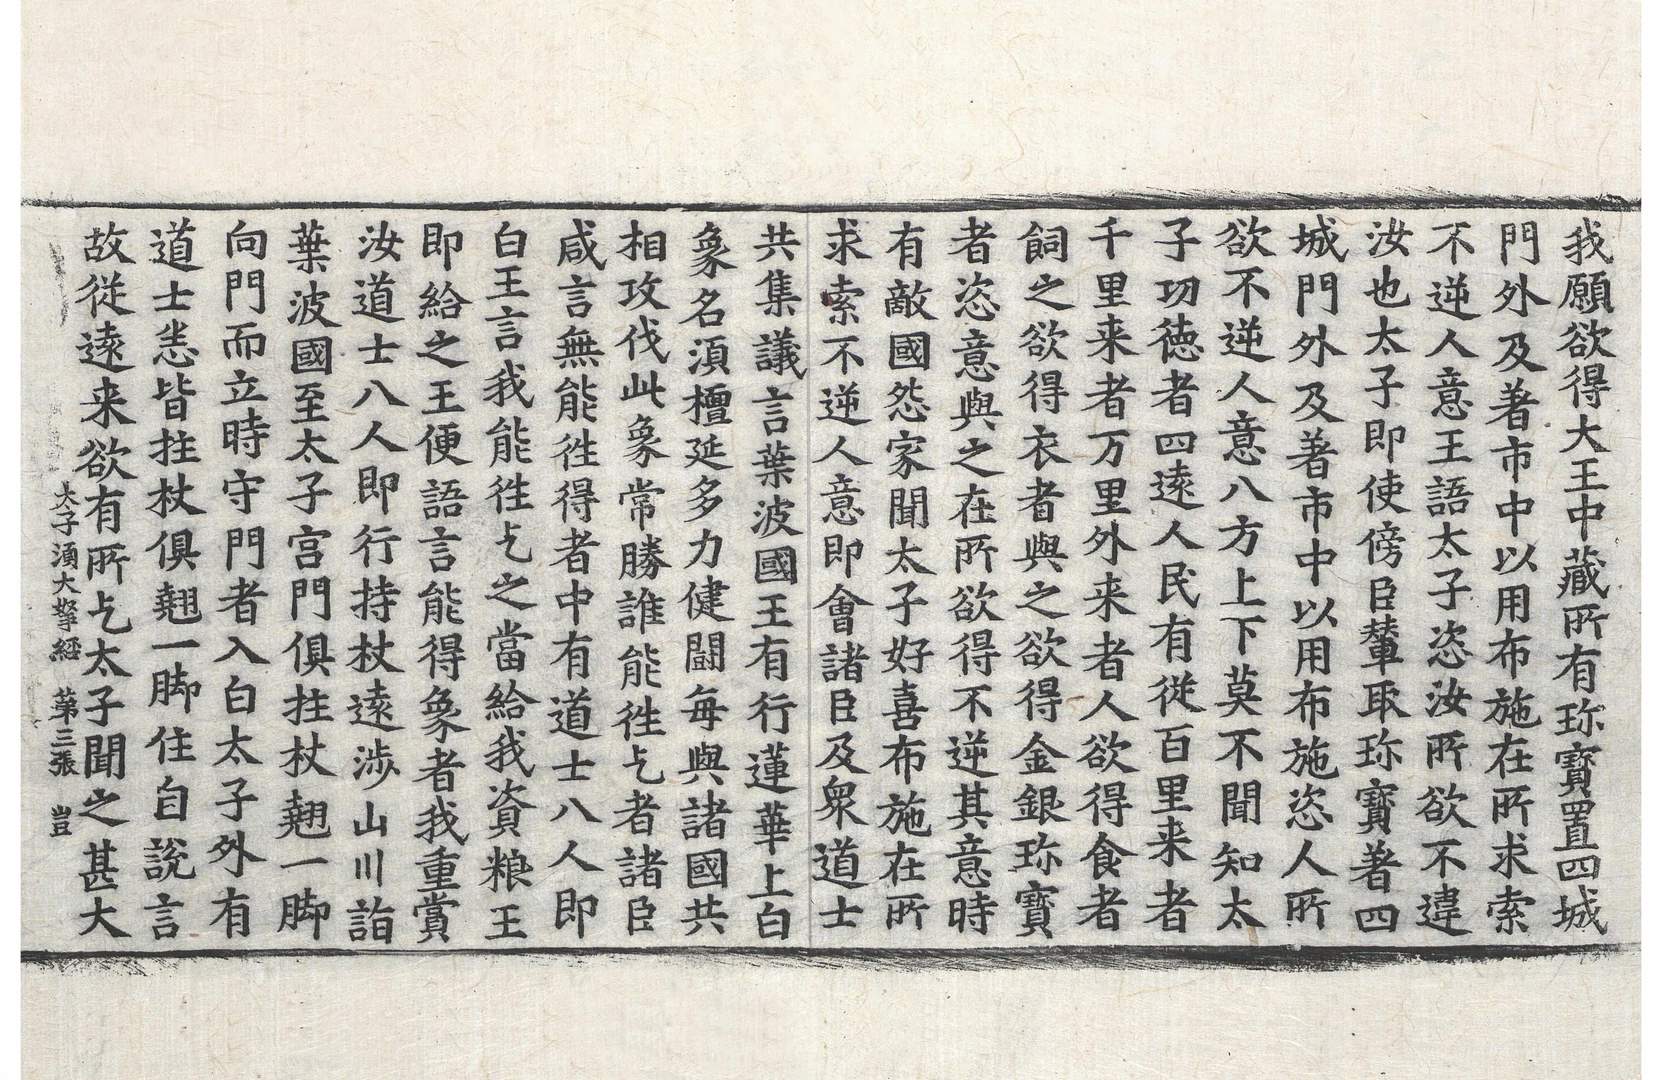 我願欲得大王中藏所有珎寶置四城
門外及著市中以用布施在所求索
不逆人意王語太子恣汝所欲不違
汝也太子即使傍臣輦取珎寶著四
城門外及著市中以用布施恣人所
欲不逆人意八方上下莫不聞知太
子功徳者四遠人民有從百里来者
千里来者万里外来者人欲得食者
飼之欲得衣者與之欲得金銀珎寶
者恣意與之在所欲得不逆其意時
有敵國怨家聞太子好喜布施在所
求索不逆人意即會諸臣及衆道士
共集議言葉波國王有行蓮華上白
象名湏檀延多力健鬪每與諸國共
相攻伐此象常勝誰能徃乞者諸臣
咸言無能徃得者中有道士八人即
白王言我能徃乞之當給我資粮王
即給之王便語言能得象者我重賞
汝道士八人即行持杖遠涉山川詣
葉波國至太子宫門俱拄杖翹一脚
向門而立時守門者入白太子外有
道士悉皆拄杖俱翹一脚住自說言
故從遠来欲有所乞太子聞之甚大
太子湏大拏經　第三張　豈